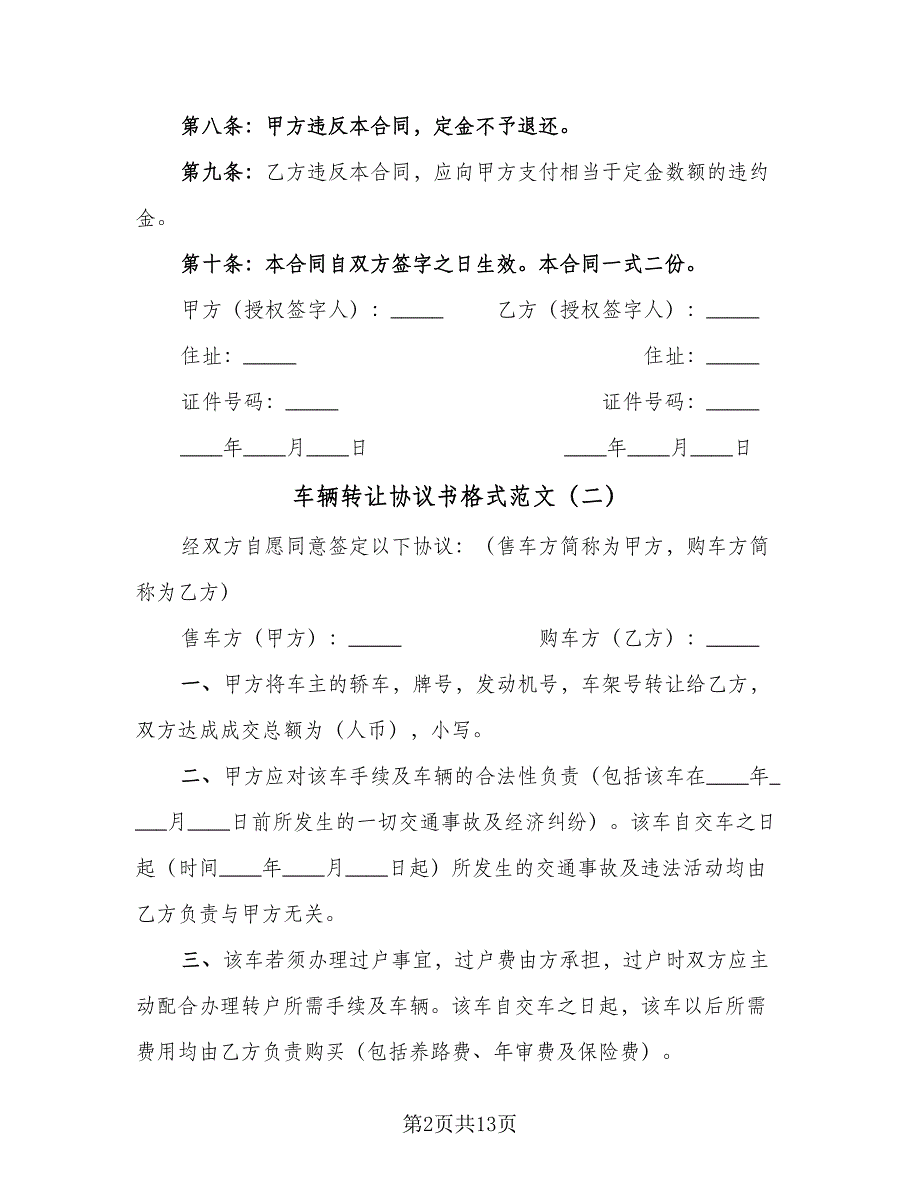 第八条：甲方违反本合同，定金不予退还。
第九条：乙方违反本合同，应向甲方支付相当于定金数额的违约
金。
第十条：本合同自双方签字之日生效。本合同一式二份。
甲方（授权签字人）：_____ 乙方（授权签字人）：_____
住址：_____ 住址：_____
证件号码：_____ 证件号码：_____
____年____月____日 ____年____月____日
车辆转让协议书格式范文（二）
经双方自愿同意签定以下协议：（售车方简称为甲方，购车方简
称为乙方）
售车方（甲方）：_____ 购车方（乙方）：_____
一、甲方将车主的轿车，牌号，发动机号，车架号转让给乙方，
双方达成成交总额为（人币），小写。
二、甲方应对该车手续及车辆的合法性负责（包括该车在____年_
___月____日前所发生的一切交通事故及经济纠纷）。该车自交车之日
起（时间____年____月____日起）所发生的交通事故及违法活动均由
乙方负责与甲方无关。
三、该车若须办理过户事宜，过户费由方承担，过户时双方应主
动配合办理转户所需手续及车辆。该车自交车之日起，该车以后所需
费用均由乙方负责购买（包括养路费、年审费及保险费）。
第2页共13页